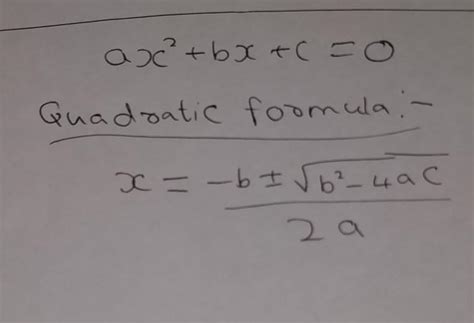 ax² + bx + c = 0
Quadratic formula :-
x = -b ± √b² - 4ac / 2a